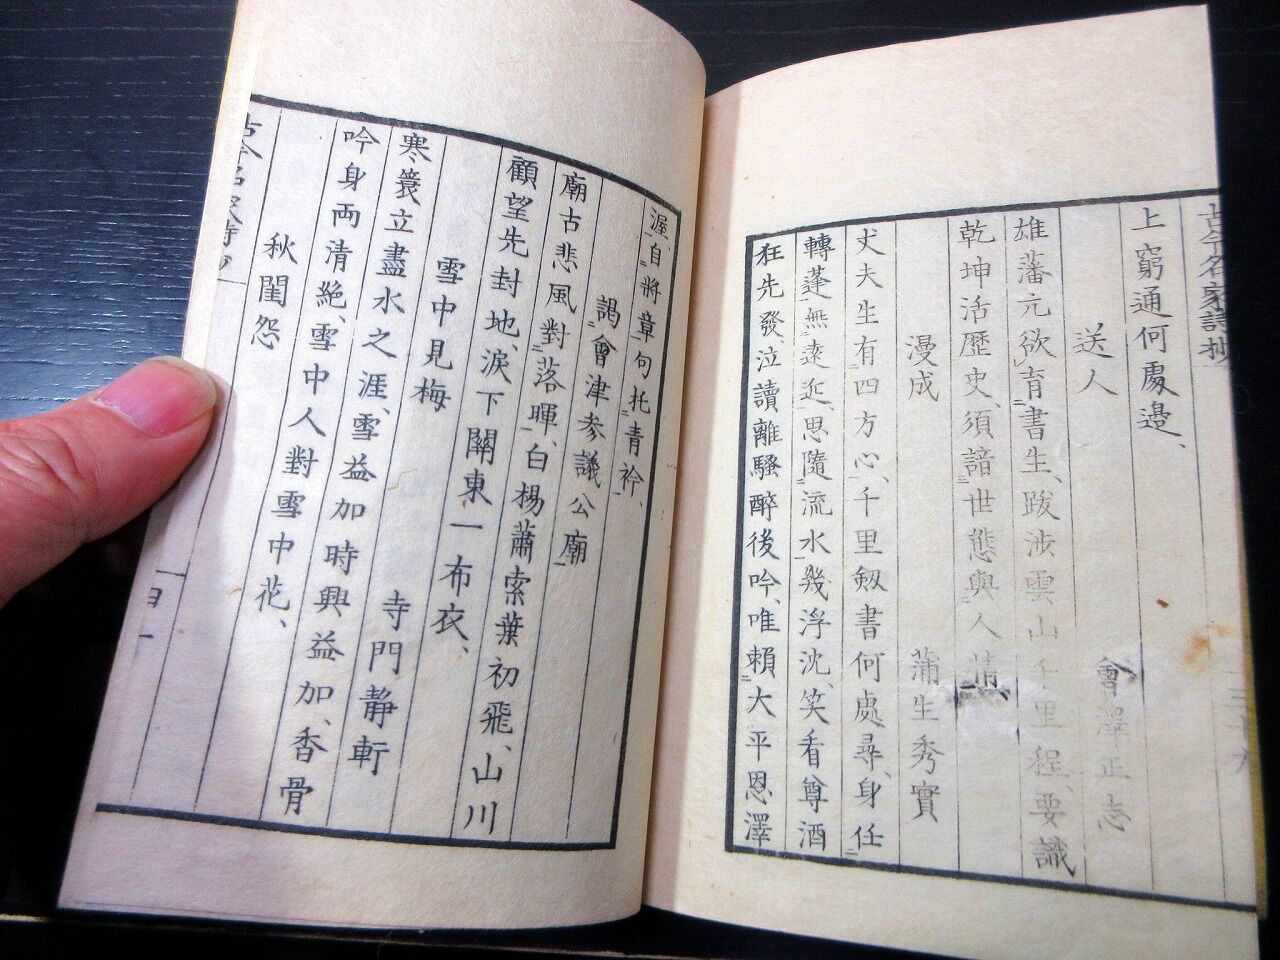 古今名家詩抄
上窮通何處邉、
送人
會澤正志
雄藩元欲育書生、跋渉雲山千里程、要識
乾坤活歴史、須諳世態與人情、
漫成
蒲生秀實
丈夫生有四方心、千里劔書何處尋、身任
轉蓬無遠近、思隨流水幾浮沈、笑看尊酒
狂先發、泣讀離騷醉後吟、唯賴大平恩澤
渥、自將章句托青衿、
謁會津參議公廟
廟古悲風對落暉、白楊蕭索葉初飛、山川
顧望先封地、淚下關東一布衣、
雪中見梅
寺門靜軒
寒簑立盡水之涯、雪益加時興益加、香骨
吟身両清絶、雪中人對雪中花、
秋閨怨
古今名家詩抄